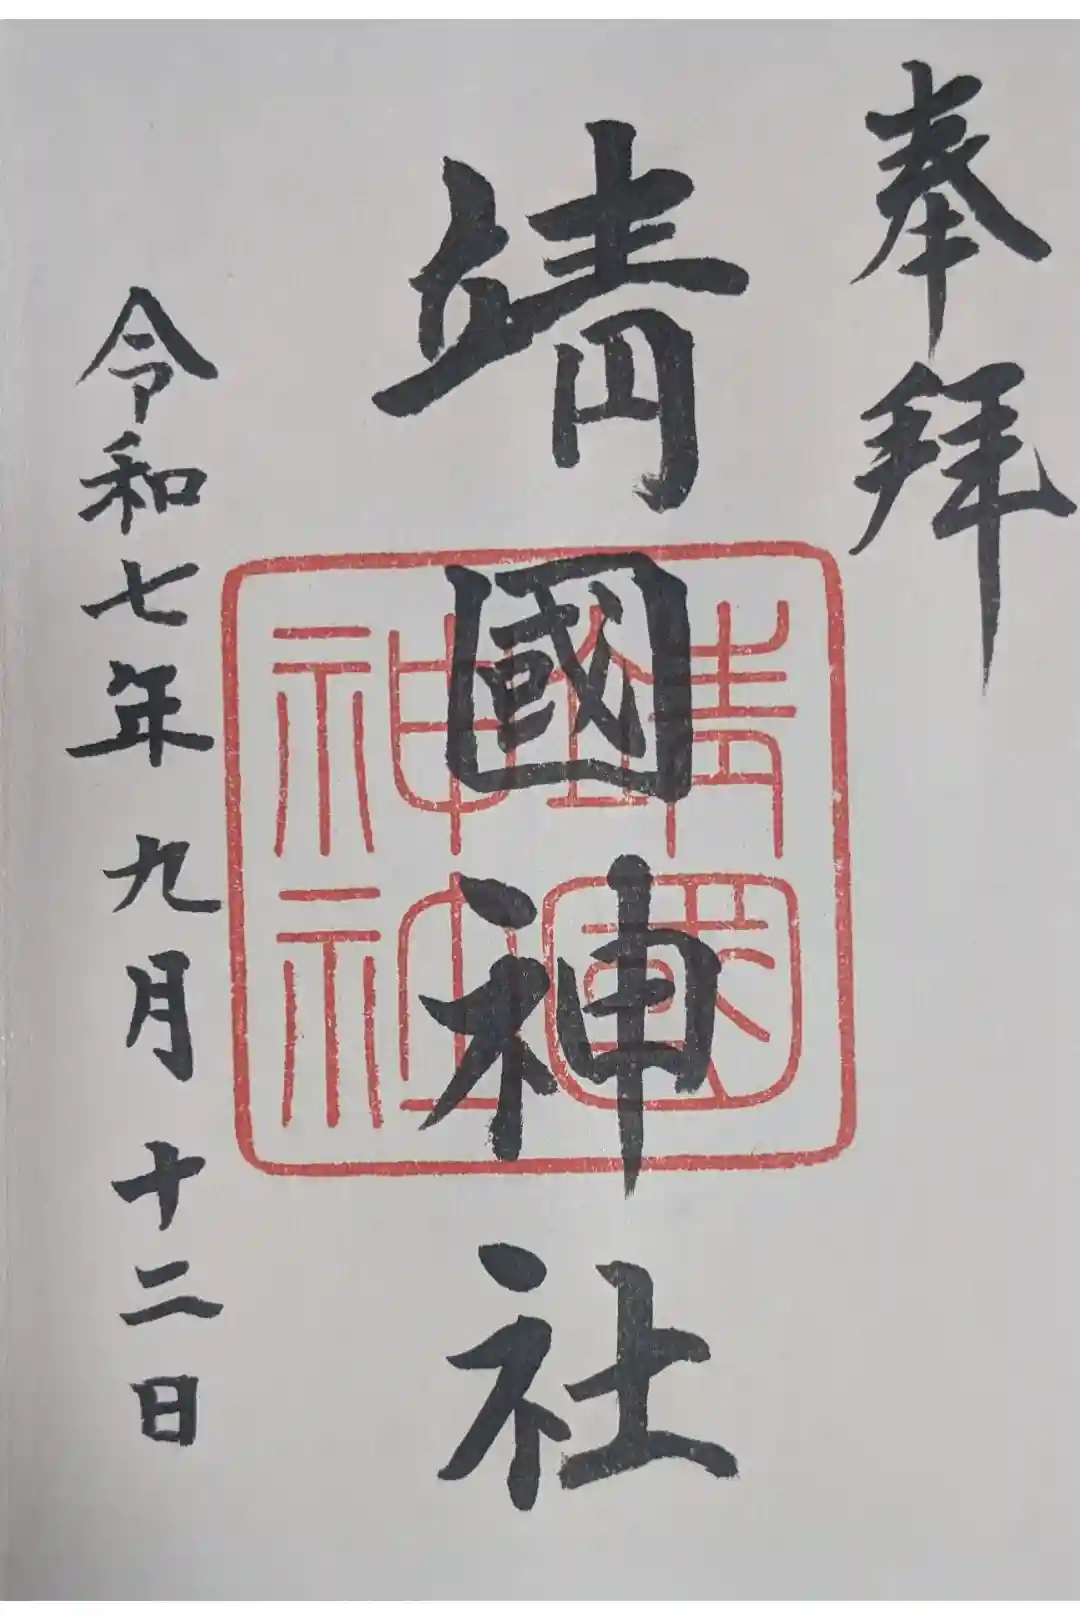 奉拜
靖國神社
靖國神社
令和七年九月十二日